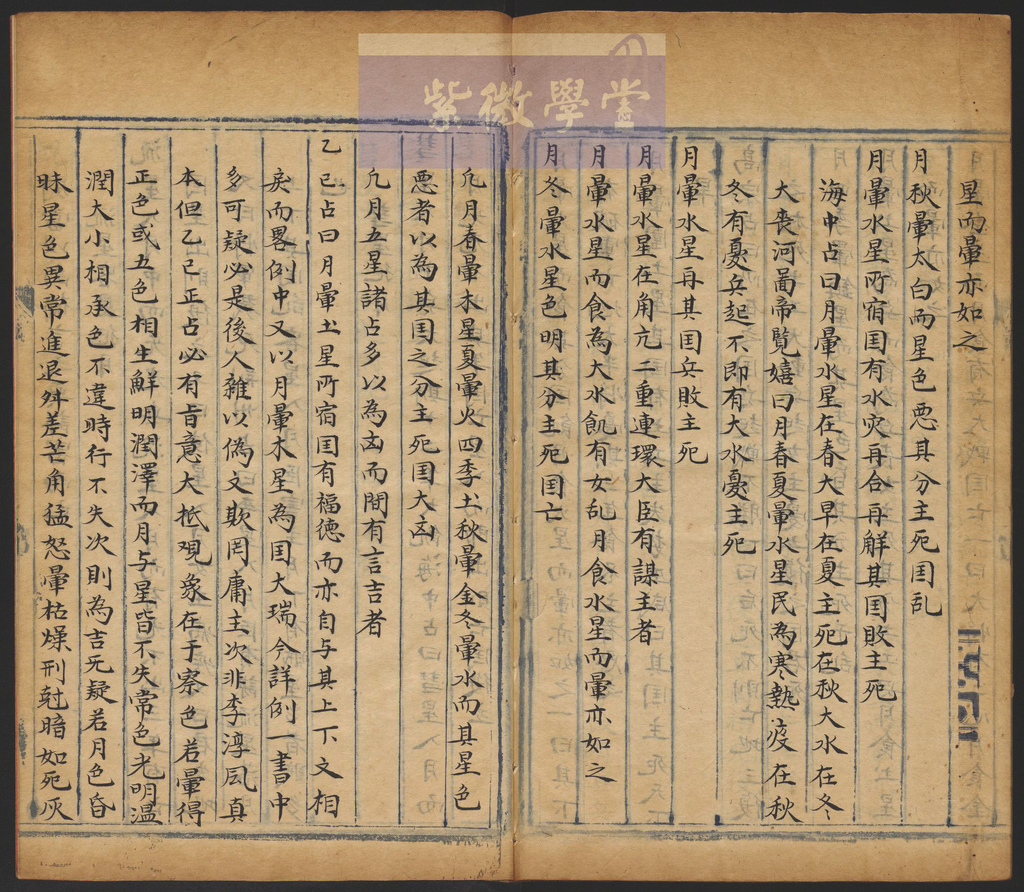 紫微學堂
星而暈亦如之
月秋暈太白而星色悪其分主死囯乱
月暈水星所宿囯有水灾再合再觧其囯敗主死
海中占曰月暈水星在春大旱在夏主死在秋大水在冬
大丧河啚帝覧嬉曰月春夏暈水星民為寒熱疫在秋
冬有憂兵起不即有大水憂主死
月暈水星再其囯兵敗主死
月暈水星在角亢二重連環大臣有謀主者
月暈水星而食為大水飢有女乱月食水星而暈亦如之
月冬暈水星色明其分主死囯亡
凡月春暈木星夏暈火四季土秋暈金冬暈水而其星色
悪者以為其囯之分主死囯大凶
凡月五星諸占多以為凶而間有言吉者
乙巳占曰月暈土星所宿囯有福徳而亦自与其上下文相
矣而畧例中又以月暈木星為囯大瑞今詳例一書中
多可疑必是後人雜以偽文欺罔庸主次非李淳風真
本但乙巳正占必有旨意大抵观象在于察色若暈得
正色或五色相生鮮明潤澤而月与星皆不失常色光明温
潤大小相承色不違時行不失次則為吉无疑若月色昏
昧星色異常進退舛差芒角猛怒暈枯燥刑尅暗如死灰